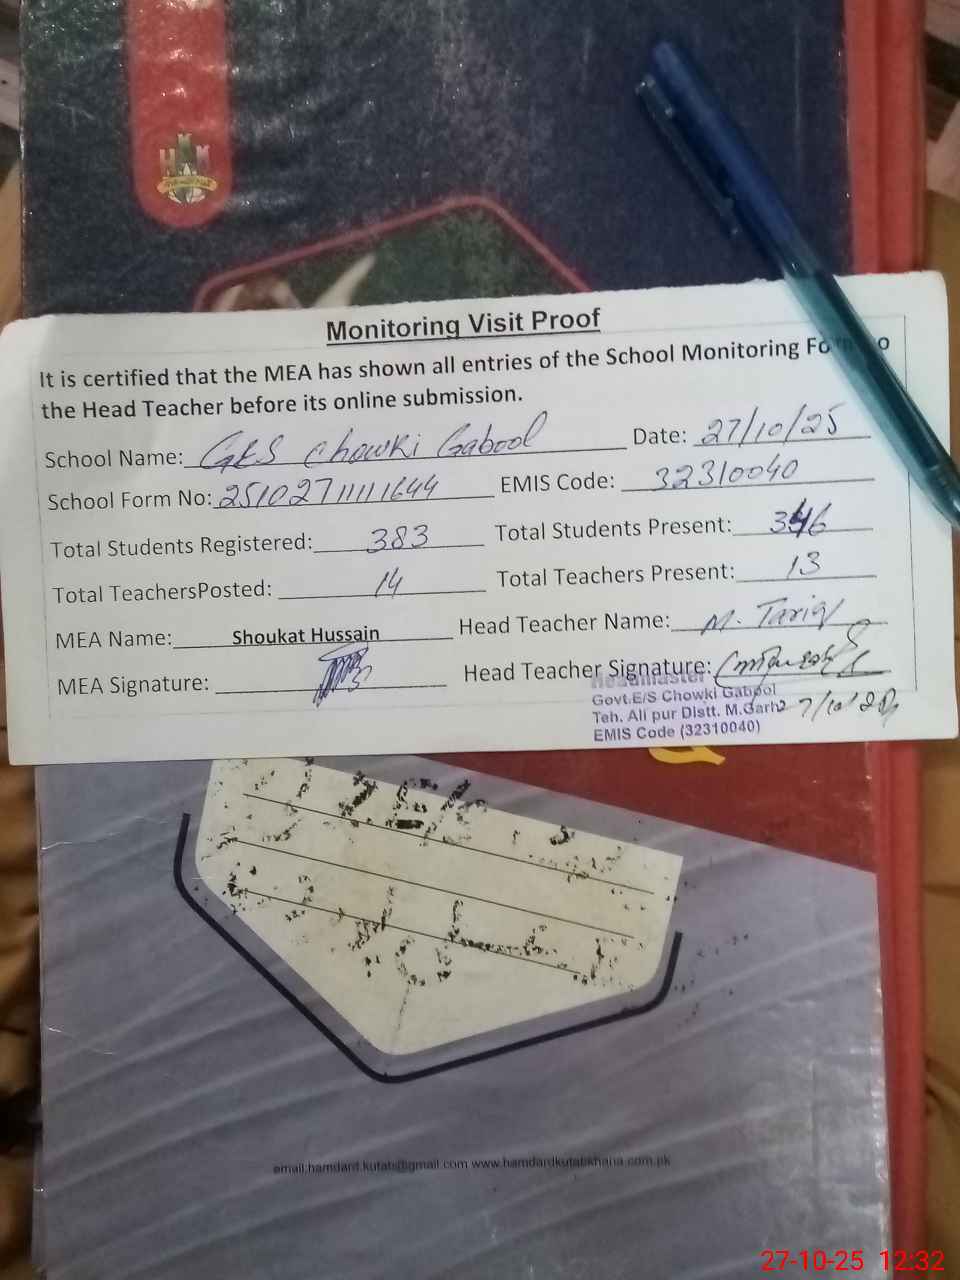 Monitoring Visit Proof
It is certified that the MEA has shown all entries of the School Monitoring Form to
the Head Teacher before its online submission.
School Name: GES Chowki Gabool Date: 27/10/25
School Form No: EMIS Code: 32310040
Total Students Registered: 383 Total Students Present: 346
Total TeachersPosted: 14 Total Teachers Present: 13
MEA Name: Shoukat Hussain Head Teacher Name: M. Tariq
MEA Signature: Head Teacher Signature:
Headmaster
Govt.E/S Chowki Gabool
Teh. Ali pur Distt. M.Garh
EMIS Code (32310040)
27/10/25
email.hamdard.kutab@gmail.com www.hamdardkutabkhana.com.pk
27-10-25 12:32